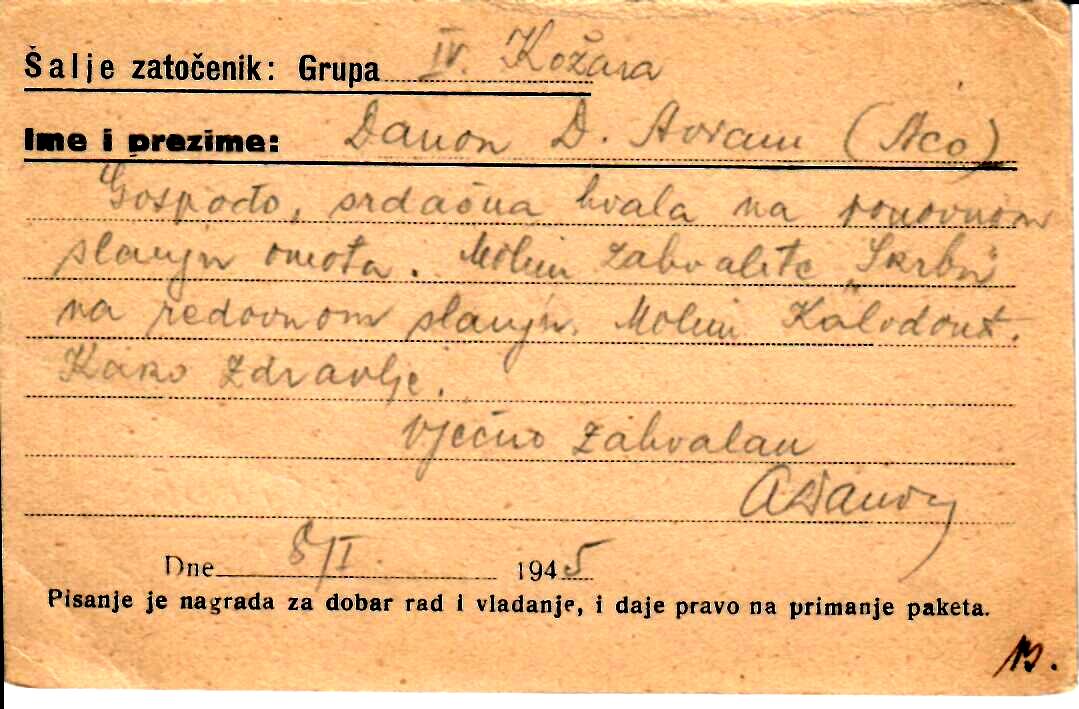 Šalje zatočenik: Grupa IV. Kožara
Ime i prezime: Danon D. Avram (Aco)
Gospođo, srdačna hvala na ponovnom
slanju omota. Molim zahvalite „Skrbi"
na redovnom slanju. Molim Kalodont.
Kako zdravlje.
vječno zahvalan
ADanon
Dne 8/I 1945
Pisanje je nagrada za dobar rad i vladanje, i daje pravo na primanje paketa.